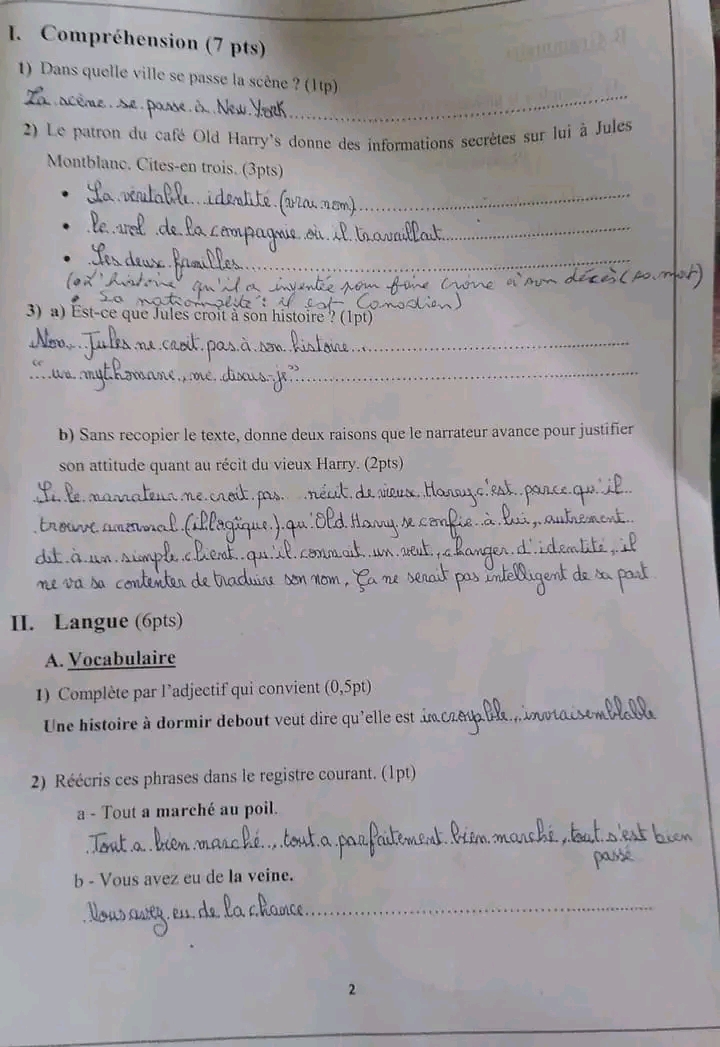 I. Compréhension (7 pts)
1) Dans quelle ville se passe la scène ? (1tp)
La scène se passe à New York
2) Le patron du café Old Harry's donne des informations secrètes sur lui à Jules
Montblanc. Cites-en trois. (3pts)
• La véritable identité (vrai nom)
• le vol de la compagnie où il travaillait
• Les deux familles
(ou l'histoire qu'il a inventée pour faire croire à son décès (sa mort)
• Sa nationalité : il est Canadien)
3) a) Est-ce que Jules croit à son histoire ? (1pt)
Non, Jules ne croit pas à son histoire
"... un mythomane, me disais-je"
b) Sans recopier le texte, donne deux raisons que le narrateur avance pour justifier
son attitude quant au récit du vieux Harry. (2pts)
Si le narrateur ne croit pas récit de vieux Harry c'est parce qu'il
trouve anormal (illogique) qu'Old Harry se confie à lui, autrement
dit à un simple client qu'il connait un veut, changer d'identité, il
ne va sa contenter de traduire son nom, Ça ne serait pas intelligent de sa part
II. Langue (6pts)
A. Vocabulaire
1) Complète par l'adjectif qui convient (0,5pt)
Une histoire à dormir debout veut dire qu'elle est incroyable, invraisemblable
2) Réécris ces phrases dans le registre courant. (1pt)
a - Tout a marché au poil.
Tout a bien marché, tout a parfaitement bien marché, tout s'est bien
passé
b - Vous avez eu de la veine.
Vous avez eu de la chance
2